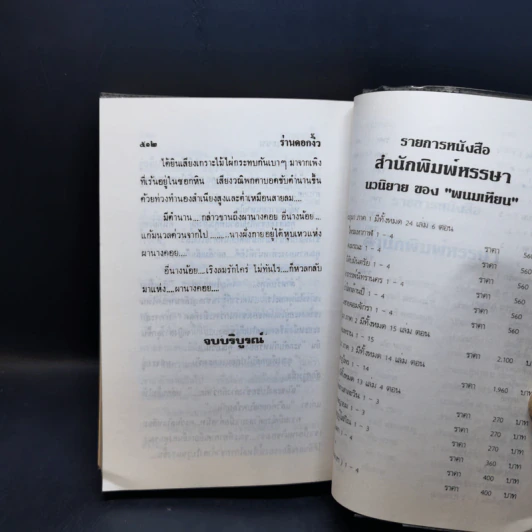 ๕๑๒
ร่านดอกงิ้ว
ได้ยินเสียงเกราะไม้ไผ่กระทบกันเบาๆ มาจากเพิง
ที่เร้นอยู่ในซอกหิน เสียงวณิพกตาบอดขับตำนานขึ้น
ด้วยท่วงทำนองสำเนียงสูงและต่ำเหมือนสายลม....
มีตำนาน....กล่าวขานถึงผานางคอย อีนางน้อย....
แก้มนวลด่วนจากไป.......นางฝังกายอยู่ใต้หุบเหวแห่ง
ผานางคอย....
อีนางน้อย....เริงลมรักใคร่ ไม่ทันไร....ก็หวลกลับ
มาแห่ง....ผานางคอย....
จบบริบูรณ์
รายการหนังสือ
สำนักพิมพ์หรรษา
นวนิยาย ของ "พนมเทียน"
ภาค 1 มีทั้งหมด 24 เล่ม 6 ตอน
1 - 4 ราคา
1 - 4 ราคา 560
1 - 4 ราคา 560
1 - 4 ราคา 560
1 - 4 ราคา 560
1 - 4 ราคา 560
ภาค 2 มีทั้งหมด 15 เล่ม
1 - 15 ราคา 2,100
ภาค 2 มีทั้งหมด 14 เล่ม
1 - 14 ราคา 1,960 บาท
13 เล่ม 4 ตอน
1 - 3 ราคา 270 บาท
1 - 3 ราคา 270 บาท
1 - 4 ราคา 360 บาท
1 - 3 ราคา 400 บาท
ราคา 400 บาท